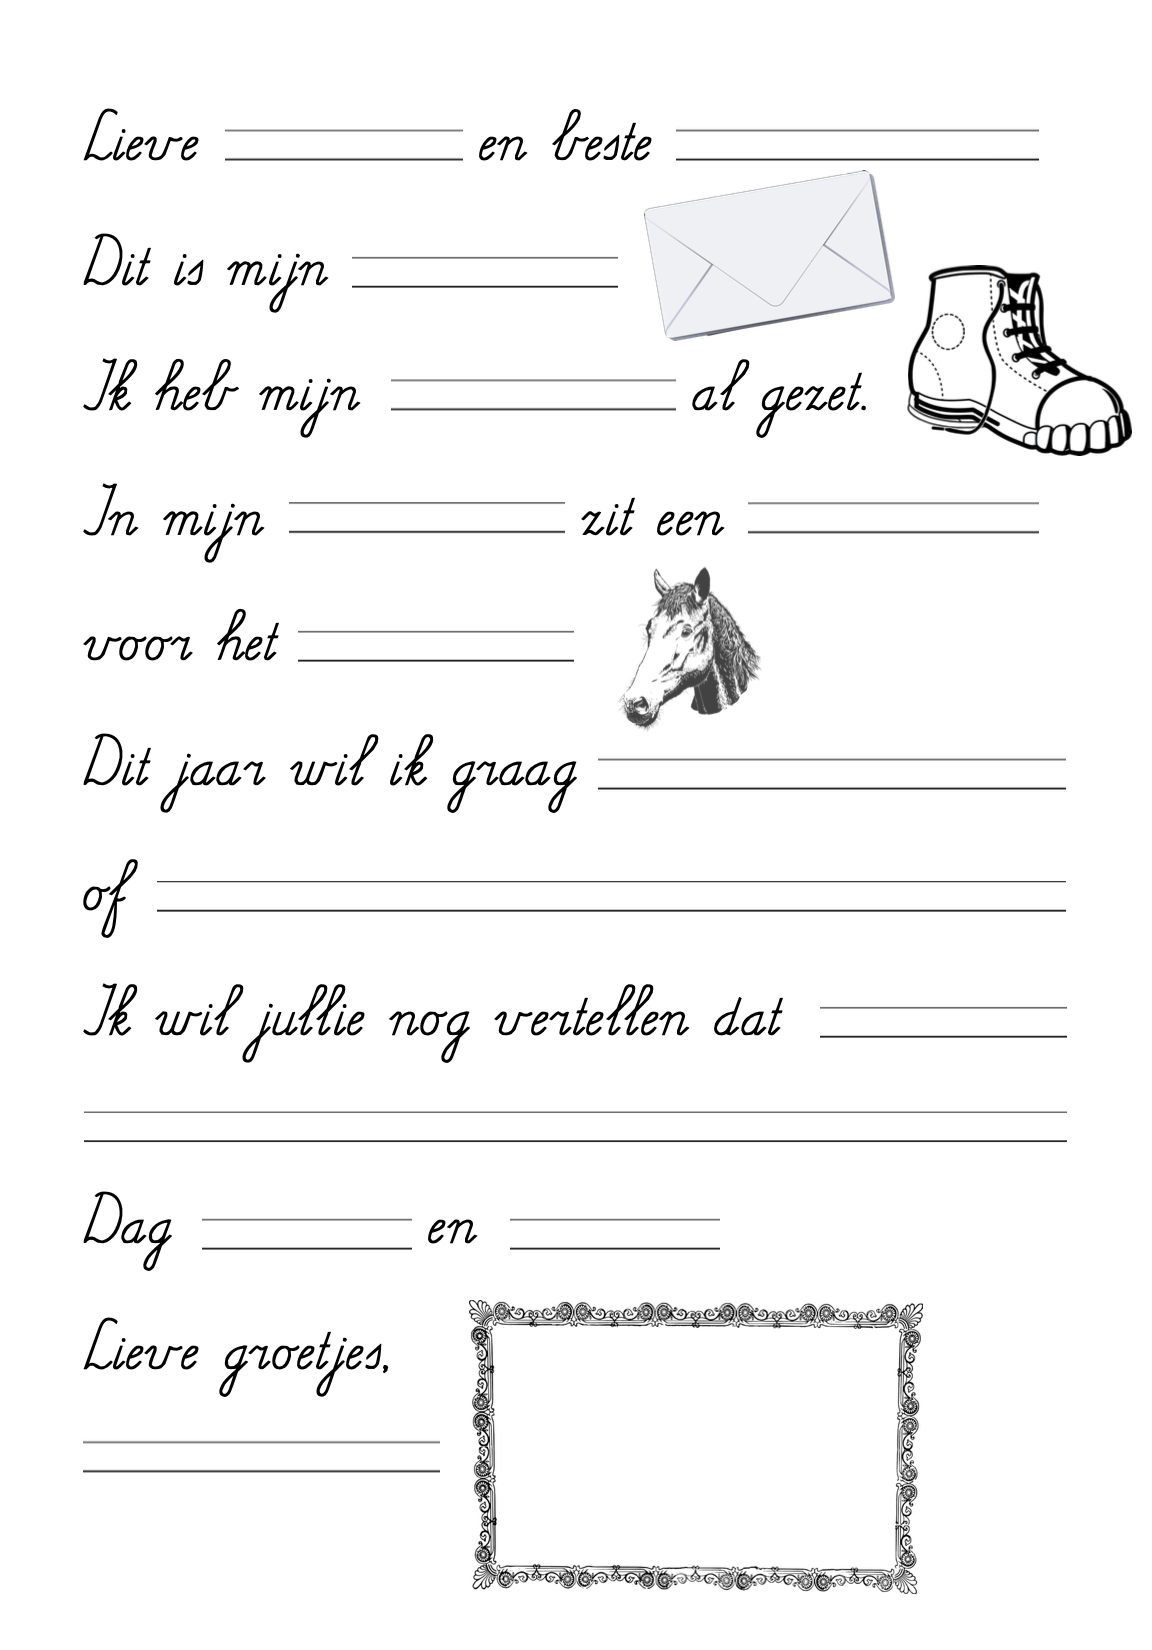 Lieve en beste
Dit is mijn
Ik heb mijn al gezet.
In mijn zit een
voor het
Dit jaar wil ik graag
of
Ik wil jullie nog vertellen dat
Dag en
Lieve groetjes,